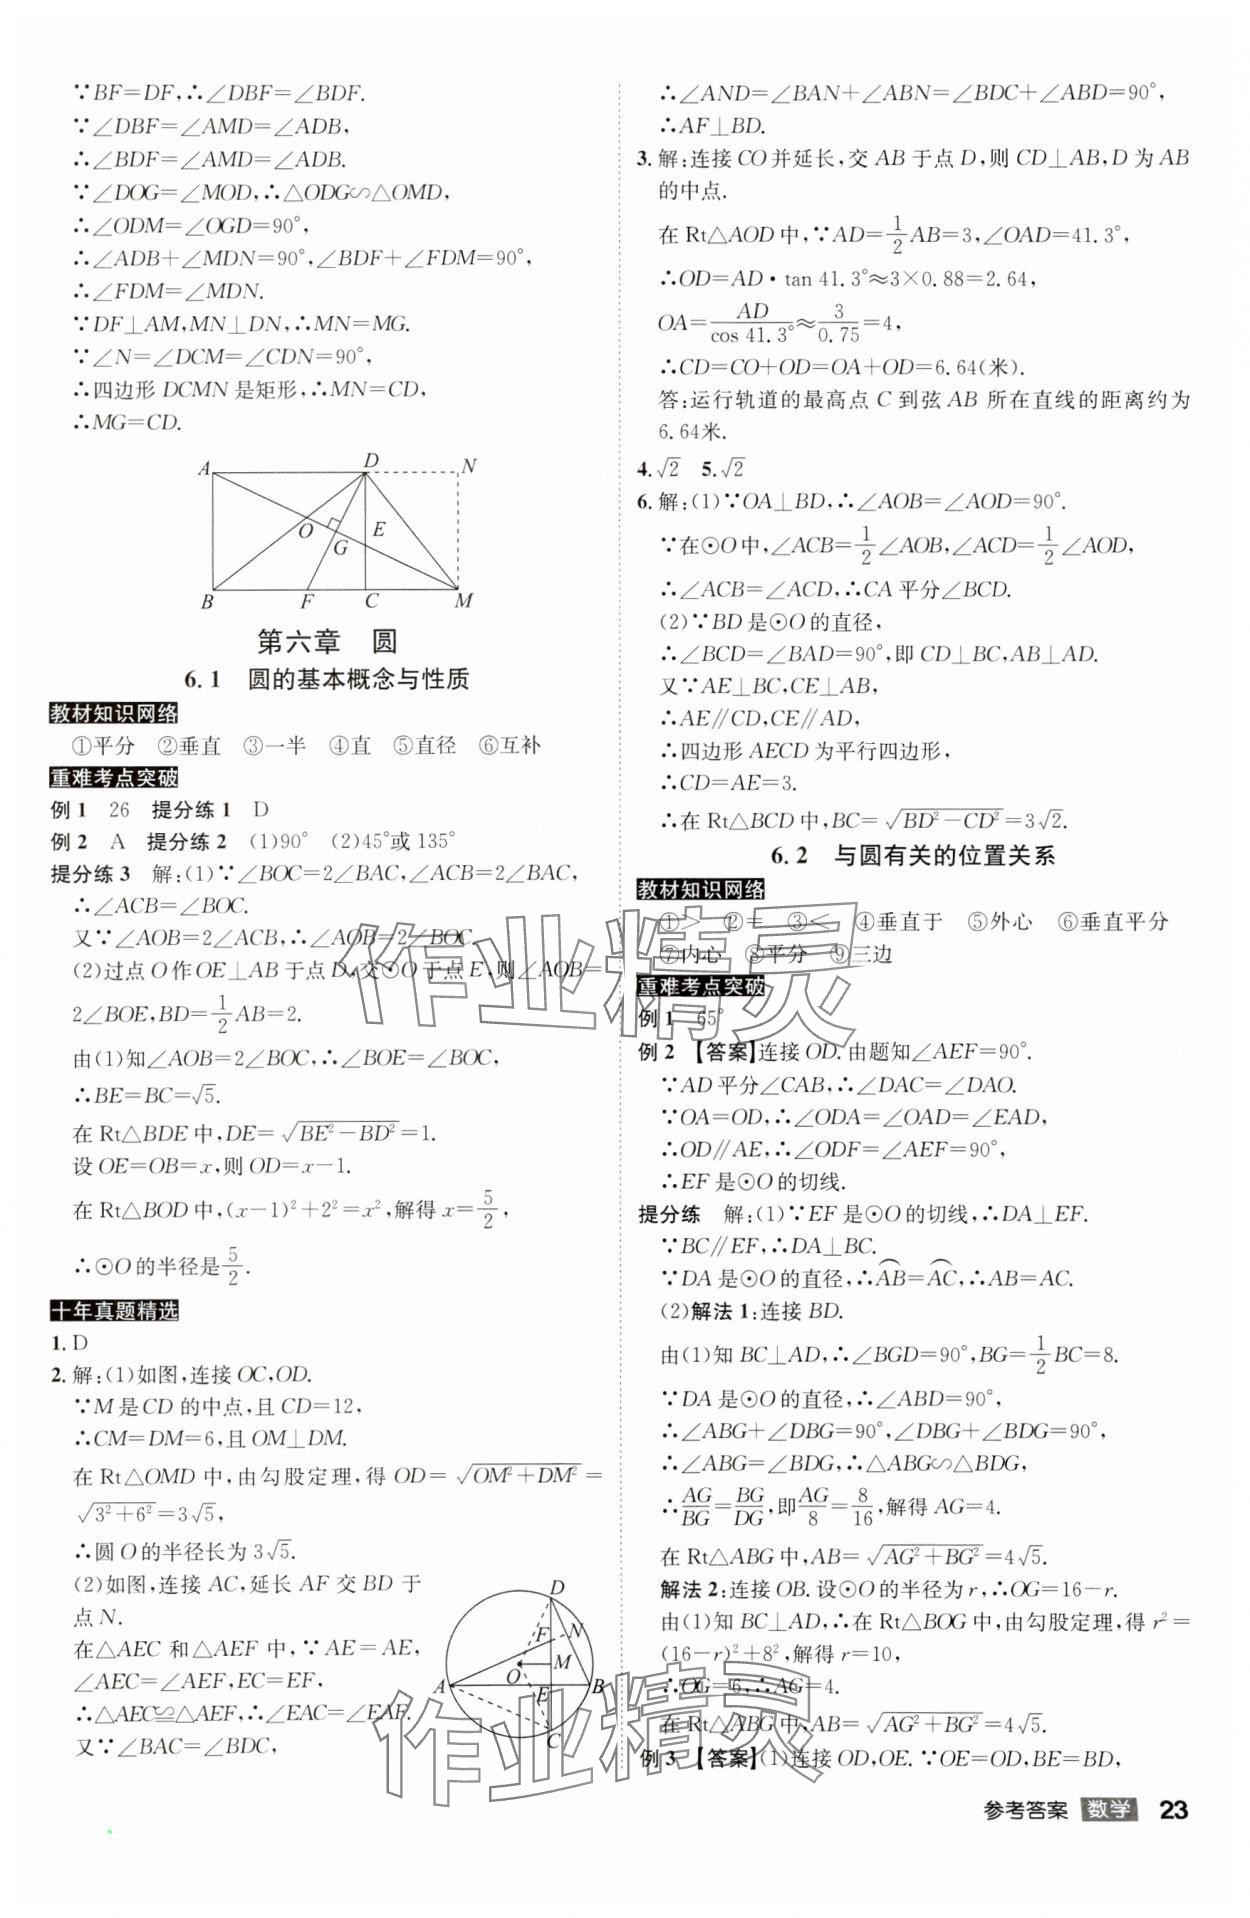 ∵BF=DF,∴∠DBF=∠BDF.
∵∠DBF=∠AMD=∠ADB,
∴∠BDF=∠AMD=∠ADB.
∵∠DOG=∠MOD,∴△ODG∽△OMD,
∴∠ODM=∠OGD=90°,
∴∠ADB+∠MDN=90°,∠BDF+∠FDM=90°,
∴∠FDM=∠MDN.
∵DF⊥AM,MN⊥DN,∴MN=MG.
∵∠N=∠DCM=∠CDN=90°,
∴四边形 DCMN 是矩形,∴MN=CD,
∴MG=CD.
A D N
O E
G
B F C M
第六章 圆
6.1 圆的基本概念与性质
教材知识网络
①平分 ②垂直 ③一半 ④直 ⑤直径 ⑥互补
重难考点突破
例 1 26 提分练 1 D
例 2 A 提分练 2 (1)90° (2)45°或 135°
提分练 3 解:(1)∵∠BOC=2∠BAC,∠ACB=2∠BAC,
∴∠ACB=∠BOC.
又∵∠AOB=2∠ACB,∴∠AOB=2∠BOC.
(2)过点 O 作 OE⊥AB 于点 D,交⊙O 于点 E,则∠AOB=
2∠BOE,BD=1/2 AB=2.
由(1)知∠AOB=2∠BOC,∴∠BOE=∠BOC,
∴BE=BC=√5.
在 Rt△BDE 中,DE=√(BE²-BD²)=1.
设 OE=OB=x,则 OD=x-1.
在 Rt△BOD 中,(x-1)²+2²=x²,解得 x=5/2,
∴⊙O 的半径是 5/2.
十年真题精选
1. D
2. 解:(1)如图,连接 OC,OD.
∵M 是 CD 的中点,且 CD=12,
∴CM=DM=6,且 OM⊥DM.
在 Rt△OMD 中,由勾股定理,得 OD=√(OM²+DM²)=
√(3²+6²)=3√5,
∴圆 O 的半径长为 3√5.
(2)如图,连接 AC,延长 AF 交 BD 于
点 N.
在△AEC 和△AEF 中,∵AE=AE,
∠AEC=∠AEF,EC=EF,
∴△AEC≌△AEF,∴∠EAC=∠EAF.
又∵∠BAC=∠BDC,
D
F N
O M
A E B
C
∴∠AND=∠BAN+∠ABN=∠BDC+∠ABD=90°,
∴AF⊥BD.
3. 解:连接 CO 并延长,交 AB 于点 D,则 CD⊥AB,D 为 AB
的中点.
在 Rt△AOD 中,∵AD=1/2 AB=3,∠OAD=41.3°,
∴OD=AD·tan 41.3°≈3×0.88=2.64,
OA=AD/cos 41.3°≈3/0.75=4,
∴CD=CO+OD=OA+OD=6.64(米).
答:运行轨道的最高点 C 到弦 AB 所在直线的距离约为
6.64米.
4. √2 5. √2
6. 解:(1)∵OA⊥BD,∴∠AOB=∠AOD=90°.
∵在⊙O 中,∠ACB=1/2∠AOB,∠ACD=1/2∠AOD,
∴∠ACB=∠ACD,∴CA 平分∠BCD.
(2)∵BD 是⊙O 的直径,
∴∠BCD=∠BAD=90°,即 CD⊥BC,AB⊥AD.
又∵AE⊥BC,CE⊥AB,
∴AE∥CD,CE∥AD,
∴四边形 AECD 为平行四边形,
∴CD=AE=3.
∴在 Rt△BCD 中,BC=√(BD²-CD²)=3√2.
6.2 与圆有关的位置关系
教材知识网络
①> ②= ③< ④垂直于 ⑤外心 ⑥垂直平分
⑦内心 ⑧平分 ⑨三边
重难考点突破
例 1 65°
例 2 【答案】连接 OD. 由题知∠AEF=90°.
∵AD 平分∠CAB,∴∠DAC=∠DAO.
∵OA=OD,∴∠ODA=∠OAD=∠EAD,
∴OD∥AE,∴∠ODF=∠AEF=90°,
∴EF 是⊙O 的切线.
提分练 解:(1)∵EF 是⊙O 的切线,∴DA⊥EF.
∵BC∥EF,∴DA⊥BC.
∵DA 是⊙O 的直径,∴⌒AB=⌒AC,∴AB=AC.
(2)解法 1:连接 BD.
由(1)知 BC⊥AD,∴∠BGD=90°,BG=1/2 BC=8.
∵DA 是⊙O 的直径,∴∠ABD=90°,
∴∠ABG+∠DBG=90°,∠DBG+∠BDG=90°,
∴∠ABG=∠BDG,∴△ABG∽△BDG,
∴AG/BG=BG/DG,即AG/8=8/16,解得 AG=4.
在 Rt△ABG 中,AB=√(AG²+BG²)=4√5.
解法 2:连接 OB. 设⊙O 的半径为 r,∴OG=16-r.
由(1)知 BC⊥AD,∴在 Rt△BOG 中,由勾股定理,得 r²=
(16-r)²+8²,解得 r=10,
∴OG=6,∴AG=4.
在 Rt△ABG 中,AB=√(AG²+BG²)=4√5.
例 3 【答案】(1)连接 OD,OE. ∵OE=OD,BE=BD,
作业精灵
作业精灵
参考答案 数学 23